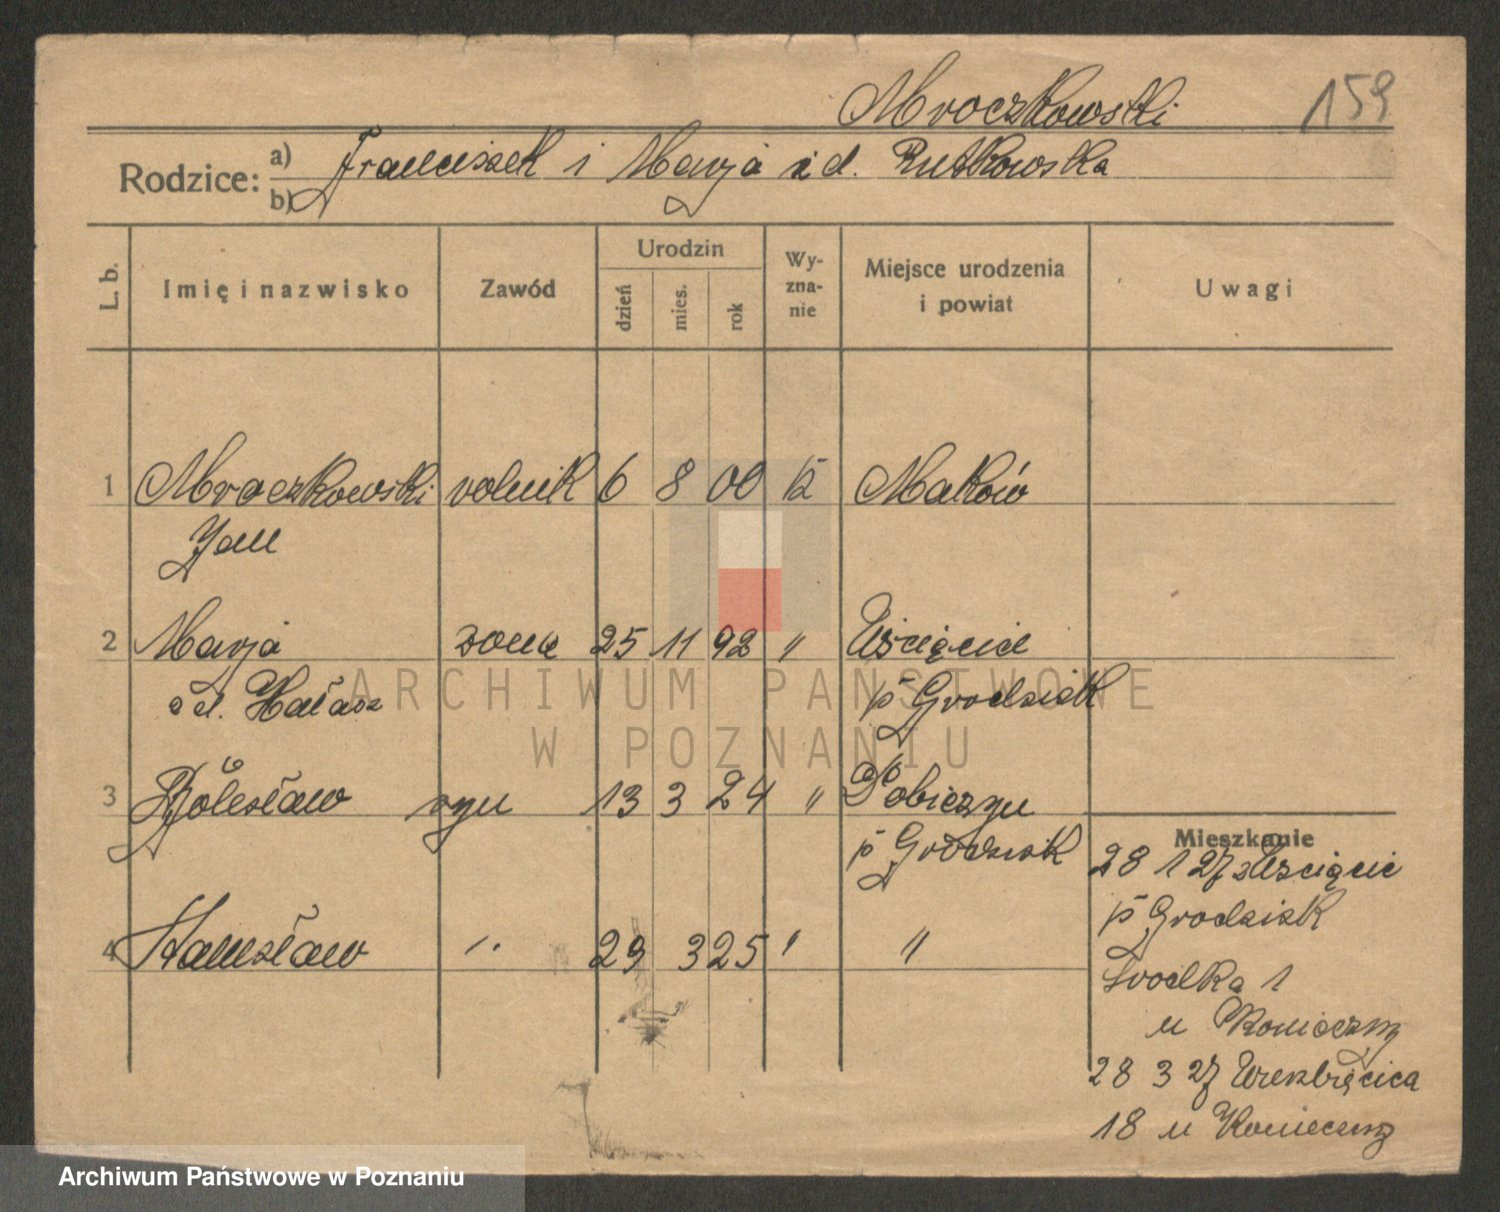 Mroczkowski 159
Rodzice: a) Franciszek i Marja z d. Rutkowska
b)
L. b. Imię i nazwisko Zawód Urodzin dzień mies. rok Wy-zna-nie Miejsce urodzenia i powiat Uwagi
1 Mroczkowski rolnik 6 8 00 Maków
Jan
2 Marja żona 25 11 92 " Uścięcice
z d. Hałasz p Grodzisk
ARCHIWUM PAŃSTWOWE
W POZNANIU
3 Bolesław syn 13 3 24 "
p Grodzisk
Mieszkanie
28 1 27 z Uścięcic
p Grodzisk
4 Stanisław " 29 3 25 " "
1
u
28 3 27
18 u Konieczny
Archiwum Państwowe w Poznaniu